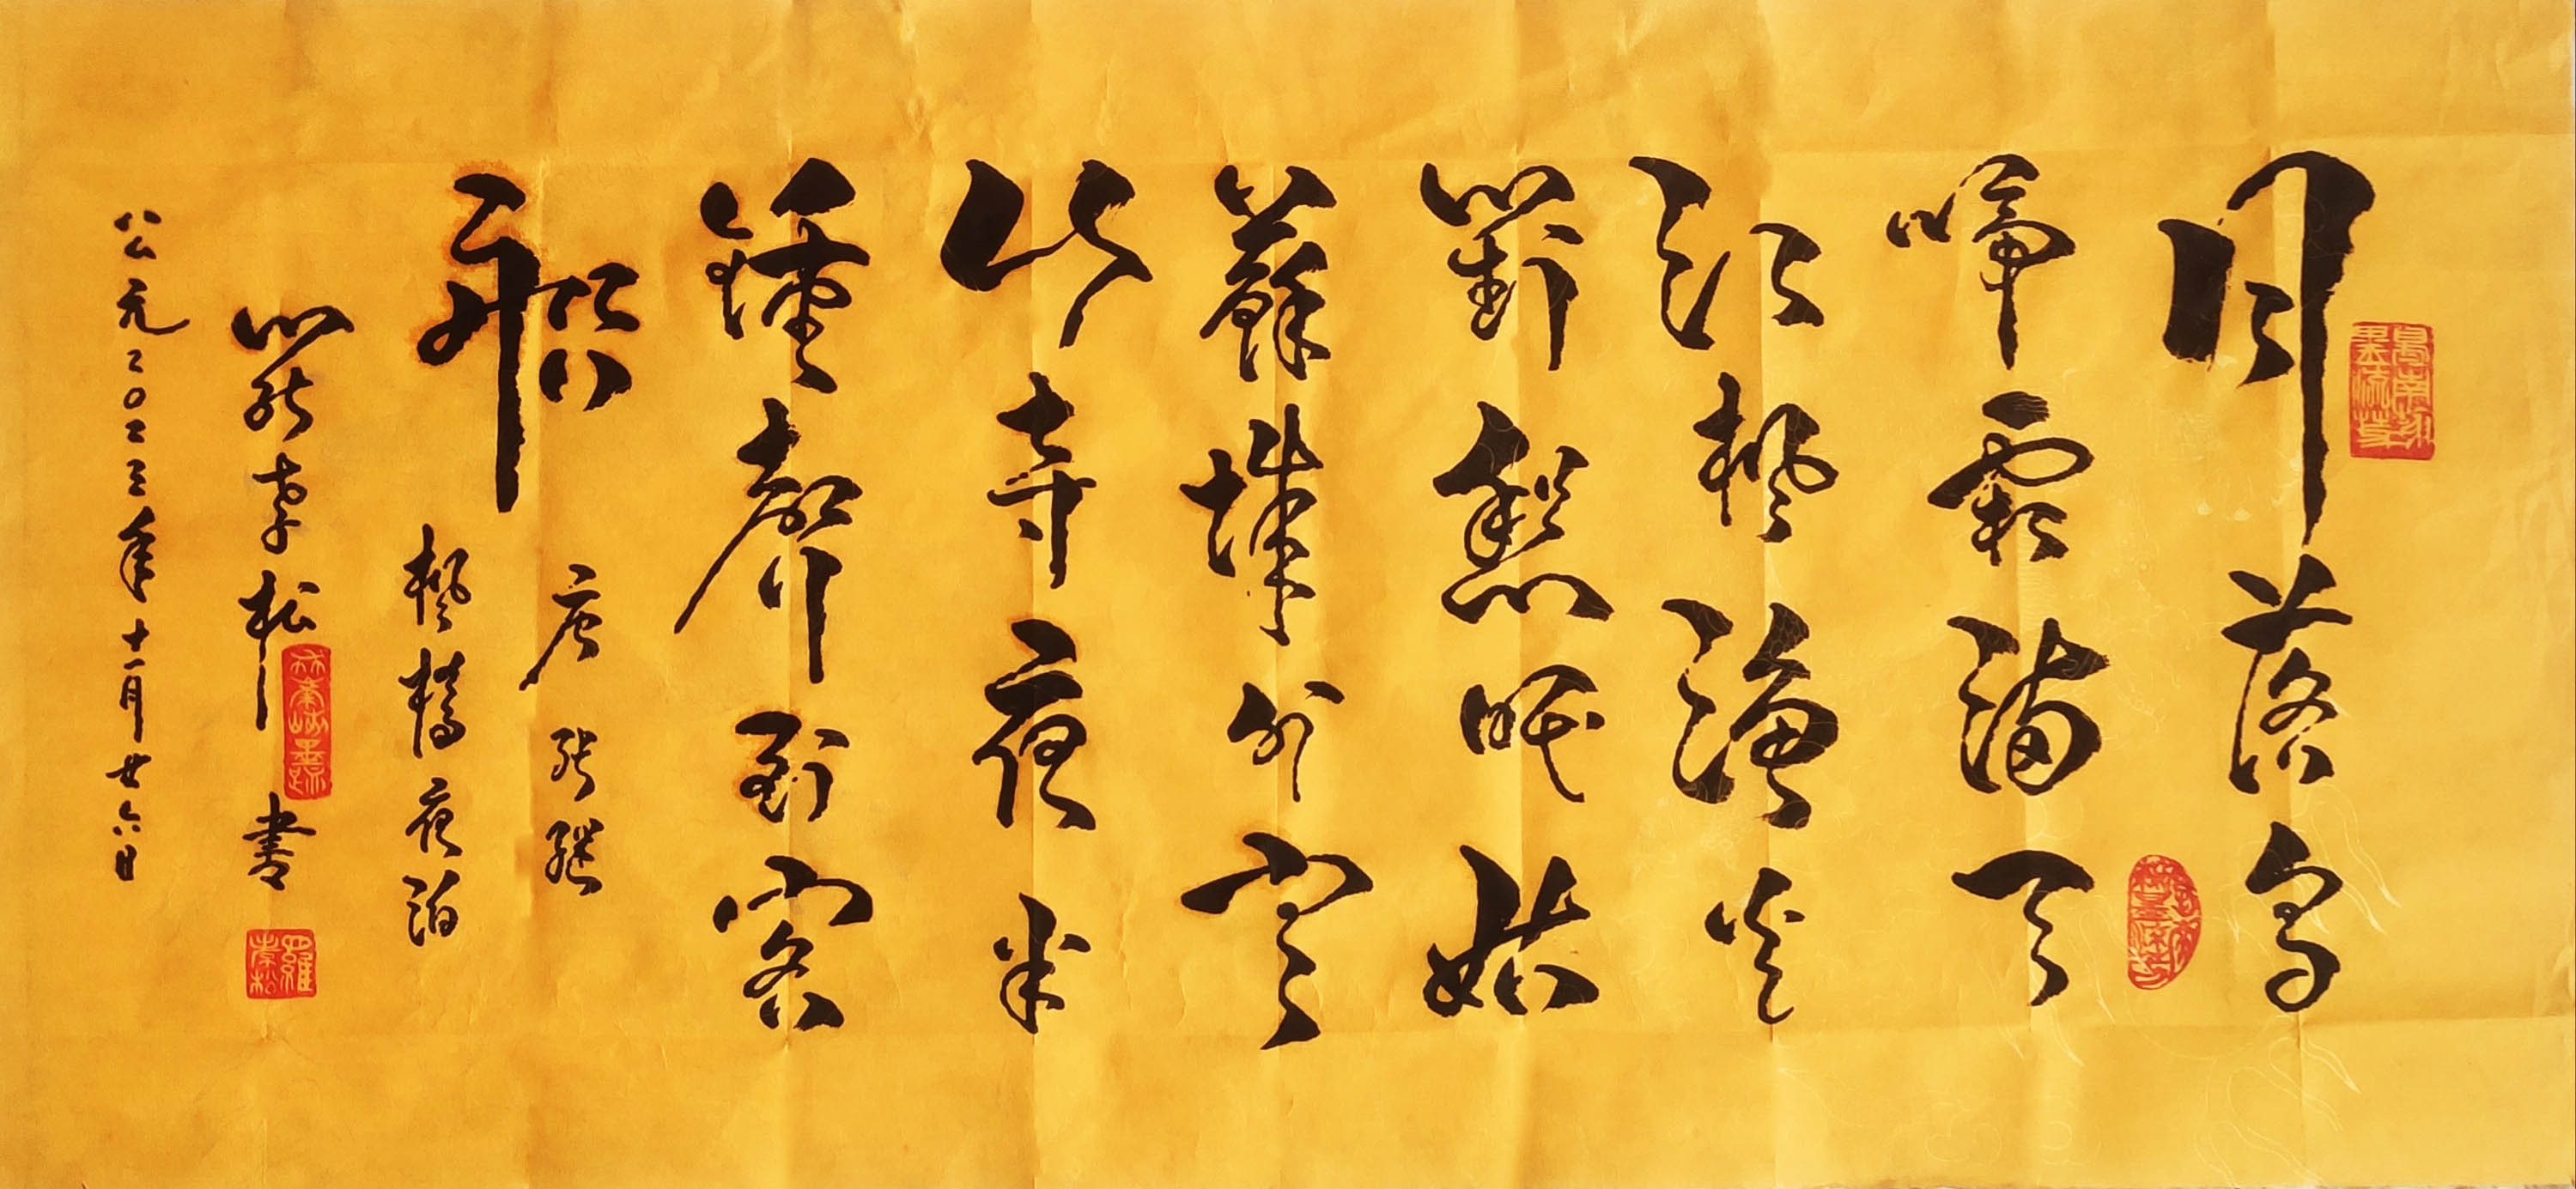 月落烏
啼霜滿天
江楓漁火
對愁眠姑
蘇城外寒
山寺夜半
鐘聲到客
船
唐 張繼
楓橋夜泊
羅孝松書
羅孝松
公元二〇二三年十一月廿六日